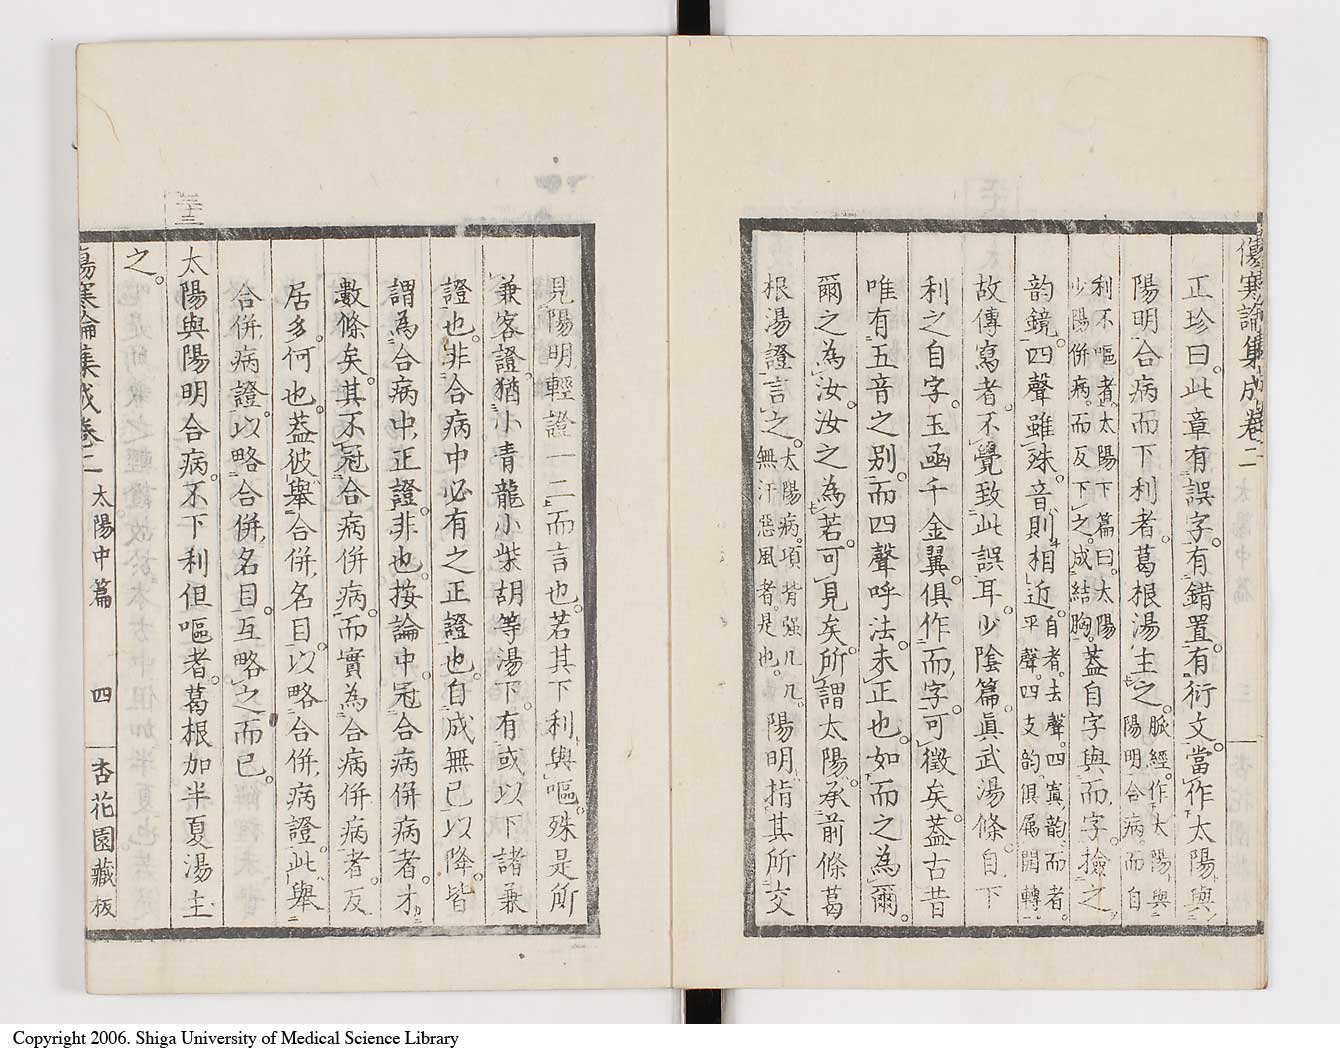 傷寒論集成卷二
正珍曰。此章有誤字。有錯置。有衍文。當作太陽與
陽明合病而下利者。葛根湯主之。脈經。作太陽與陽明合病。而自
利不嘔者。太陽下篇曰。太陽少陽併病。而反下之。成結胸。蓋自字與而字。撿之
韵鏡。四聲雖殊。音則相近。自者。去聲。四寘韵。而者。平聲。四支韵。俱属開轉。
故傳寫者。不覺致此誤耳。少陰篇眞武湯條。自下
利之自字。玉函千金翼。俱作而字。可徵矣。蓋古昔
唯有五音之別。而四聲呼法。未正也。如而之為爾。
爾之為汝。汝之為若。可見矣。所謂太陽。承前條葛
根湯證言之。太陽病。項背强几几。無汗惡風者。是也。陽明。指其所交
見陽明輕證一二而言也。若其下利與嘔。殊是所
兼客證。猶小青龍小柴胡等湯下。有或以下諸兼
證也。非合病中必有之正證也。自成無已以降。皆
謂為合病中。正證。非也。按論中。冠合病併病者。才
數條矣。其不冠合病併病。而實為合病併病者。反
居多。何也。蓋彼舉合併名目。以略合併病證。此舉
合併病證。以略合併名目。互略之而已。
太陽與陽明合病。不下利但嘔者。葛根加半夏湯主
之。
傷寒論集成卷二 太陽中篇 四 杏花園藏板
Copyright 2006. Shiga University of Medical Science Library